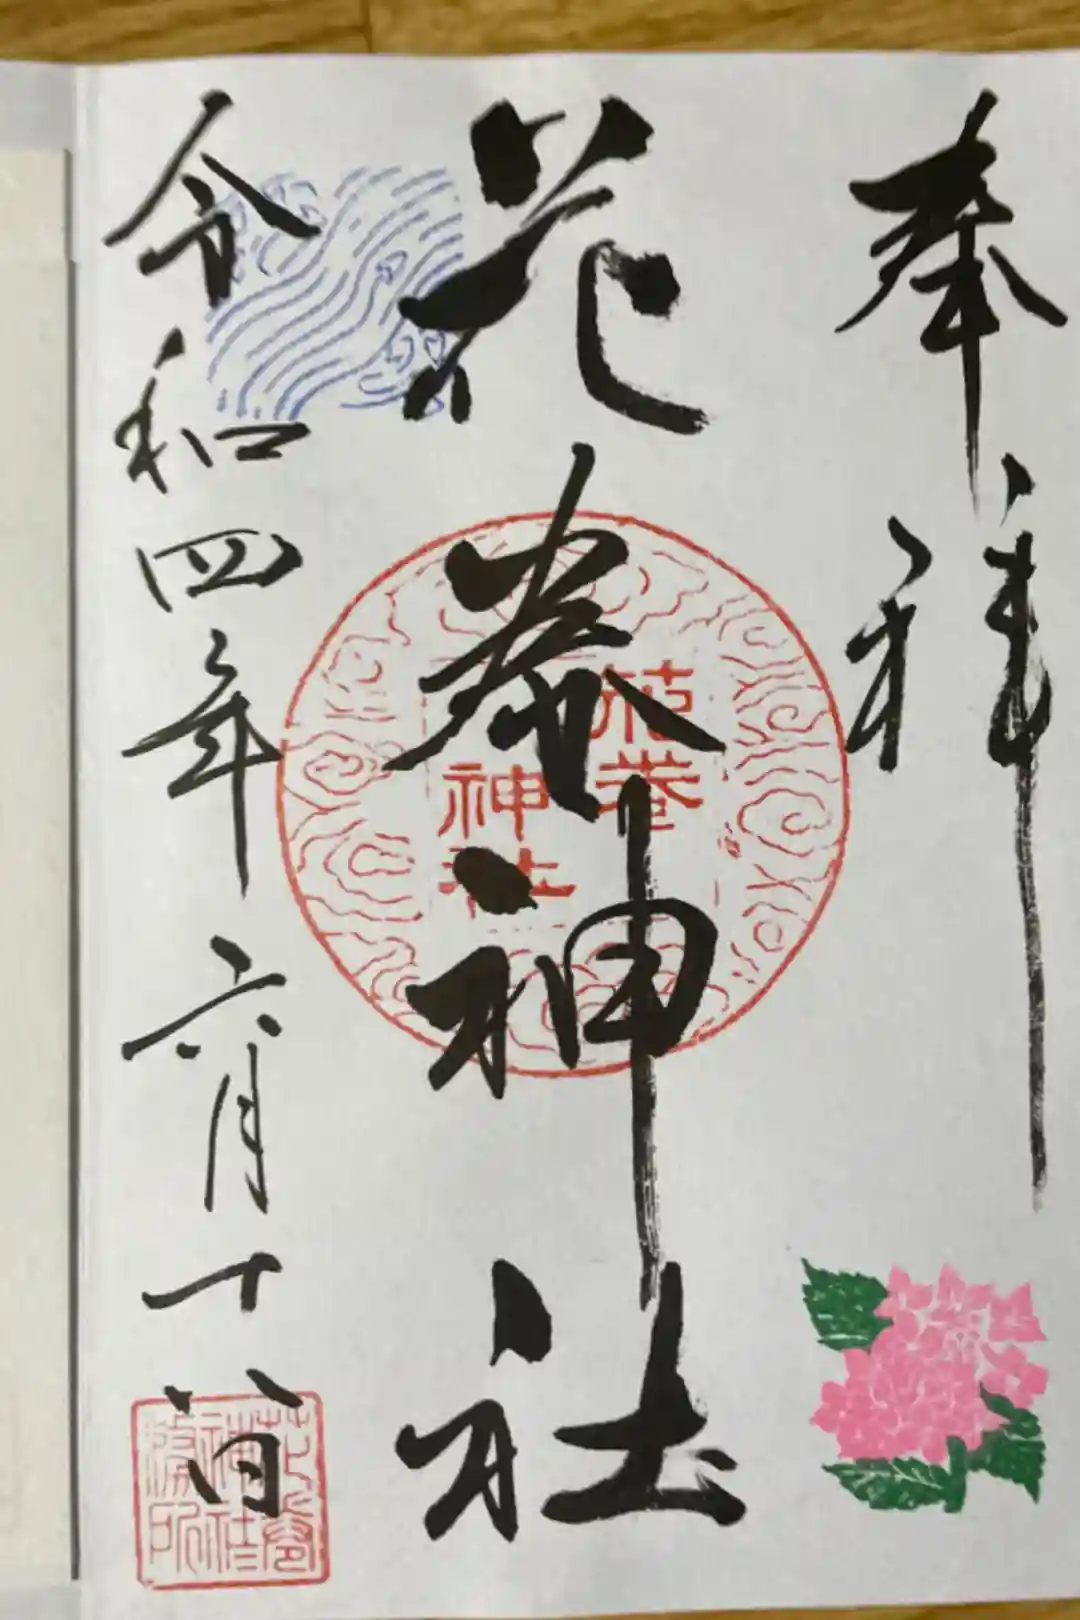 奉拝
花巻神社
令和四年六月十八日
花巻
神社
花巻
神社
務所